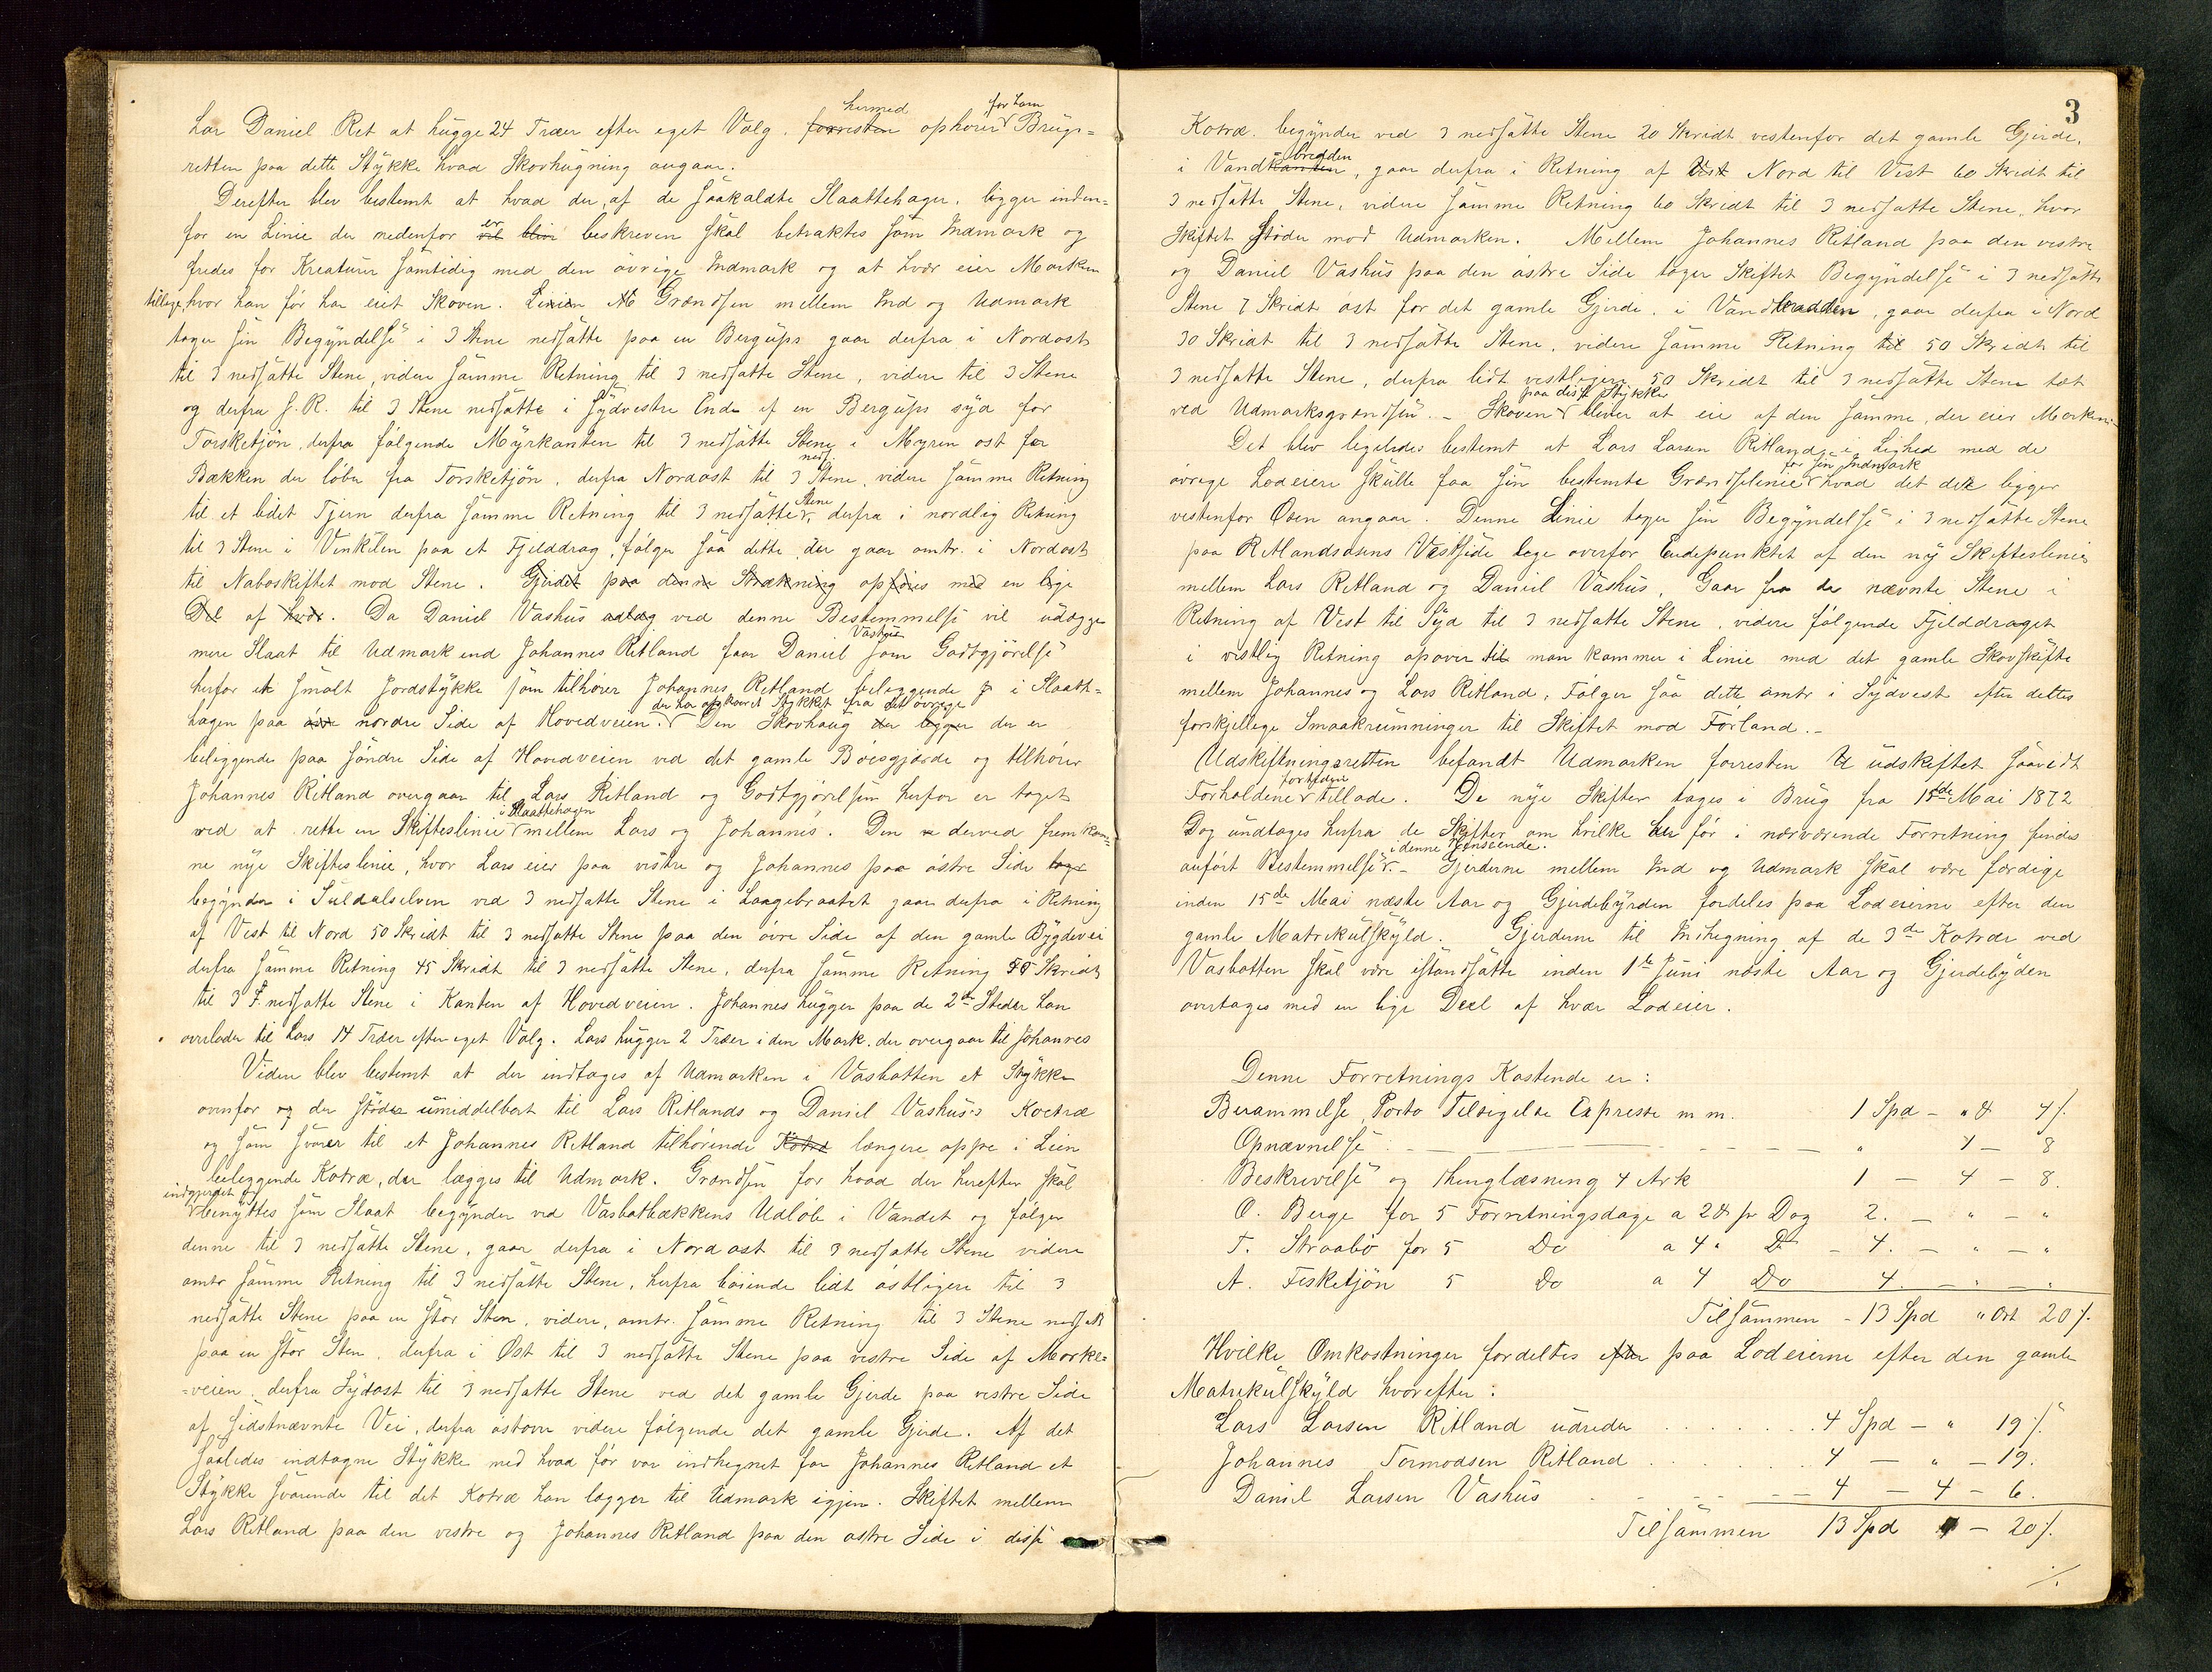 har Daniel Ret at hugge 24 Træer efter eget Valg. forresten hermed ophører for ham Brugs=
retten paa dette Stykke hvad Skovhugning angaar.
Derefter blev bestemt at hvad der, af de saakaldte Slaattehager, ligger inden=
for en Linie der nedenfor vil blive er beskreven skal betraktes som Indmark og
fredes for Kreaturer samtidig med den øvrige Indmark og at hvær eier Marken
tillige, hvor han før har eiet Skoven. Linien Grændsen mellem Ind og Udmark
tager sin Begyndelse i 3 Stene nedsatte paa en Bergups gaar derfra i Nordost
til 3 nedsatte Stene, videre samme Retning til 3 nedsatte Stene, videre til 3 Stene
og derfra s. R. til 3 Stene nedsatte i Sydvestre Ende af en Bergups syd for
Torsketjøn, derfra følgende Myrkanten til 3 nedsatte Stene i Myren ost for
Bækken der løber fra Torsketjøn, derfra Nordost til 3 neds. Stene, videre samme Retning
til et lidet Tjern derfra samme Retning til 3 nedsatte Stene, derfra i nordlig Retning
til 3 Stene i Venkilen paa et Fjelddrag, følger saa dette, der gaar omtr. i Nordost
til Naboskiftet mod Stene. Gjerdet paa denne Strækning opføres med en lige
Del af hvær. Da Daniel Vashus ved denne Bestemmelse vil udlægge
mere Slaat til Udmark end Johannes Ritland faar Daniel Vashus som Godtgjørelse
herfor et smalt Jordstykke som tilhører Johannes Ritland beliggende i Slaatte=
hagen paa nordre Side af Hovedveien. der har afskaaret Stykket fra det øvrige Den Skovhaug der ligger der er
beliggende paa søndre Side af Hovedveien ved det gamle Bøesgjærde og tilhører
Johannes Ritland overgaar til Lars Ritland og Godtgjørelsen herfor er taget
ved at rette en Skifteslinie i Slaattehagen mellem Lars og Johannes. Den derved fremkom=
ne nye Skifteslinie, hvor Lars eier paa vestre og Johannes paa østre Side tager
begynder i Suldalselven ved 3 nedsatte Stene i Laagebraatet gaar derfra i Retning
af Vest til Nord 50 Skridt til 3 nedsatte Stene paa den øvre Side af den gamle Bygdevei
derfra samme Retning 45 Skridt til 3 nedsatte Stene, derfra samme Retning Skridt
til 3 nedsatte Stene i Kanten af Hovedveien. Johannes hugger paa de 2de Steder han
overlader til Lars 14 Træer efter eget Valg. Lars hugger 2 Træer i den Mark, der overgaar til Johannes
Videre blev bestemt at der indtages af Udmarken i Vasbotten et Stykke
ovenfor og der støder umiddelbart til Lars Ritlands og Daniel Vashus's Kotræ
og som svarer til et Johannes Ritland tilhørende Kotræ længere oppe i Lien
beliggende Kotræ, der lægges til Udmark. Grændsen for hvad der herefter skal
indgjerdet og benyttes som Slaat begynder ved Vasbotbækkens Udløb i Vandet og følger
denne til 3 nedsatte Stene, gaar derfra i Nordost til 3 nedsatte Stene videre
omtr samme Retning til 3 nedsatte Stene, herfra bøiende lidt østligere til 3
nedsatte Stene paa en stor Sten, videre, omtr. samme Retning til 3 Stene nedsatte
paa en stor Sten, derfra i Øst til 3 nedsatte Stene paa vestre Side af Marke=
=veien, derfra Sydost til 3 nedsatte Stene ved det gamle Gjerde paa vestre Side
af sidstnævnte Vei, derfra østover videre følgende det gamle Gjerde. Af det
saaledes indtagne Stykke med hvad før var indhegnet faar Johannes Ritland et
Stykke svarende til det Kotræ han lægger til Udmark igjen. Skiftet mellem
Lars Ritland paa den vestre og Johannes Ritland paa den østre Side i disse
3
Kotræ. begynder ved 3 nedsatte Stene 20 Skridt vestenfor det gamle Gjerde,
i Vandkanten bredden, gaar derfra i Retning af Vest Nord til Vest 60 Skridt til
3 nedsatte Stene, videre samme Retning 60 Skridt til 3 nedsatte Stene, hvor
Skiftet støder mod Udmarken. Mellem Johannes Ritland paa den vestre
og Daniel Vashus paa den østre Side tager Skiftet Begyndelse i 3 nedsatte
Stene 7 Skridt øst for det gamle Gjerde, i Vandbredden, gaar derfra i Nord
30 Skridt til 3 nedsatte Stene, videre samme Retning til 50 Skridt til
3 nedsatte Stene, derfra lidt vestligere 50 Skridt til 3 nedsatte Stene tæt
ved Udmarksgrændsen. – Skoven paa disse Stykker bliver at eie af den samme, der eier Marken.
Det blev ligeledes bestemt at Lars Larsen Ritland i Lighed med de
øvrige Lodeiere skulle faa sin bestemte Grændselinie for sin Indmark hvad det der ligger
vestenfor Osen angaar. Denne Linie tager sin Begyndelse i 3 nedsatte Stene
paa Ritlandsosens Vestside lige overfor Endepunktet af den ny Skifteslinie
mellem Lars Ritland og Daniel Vashus, Gaar fra de nævnte Stene i
Retning af Vest til Syd til 3 nedsatte Stene, videre følgende Fjelddraget
i vestlig Retning opover til man kommer i Linie med det gamle Skovskifte
mellem Johannes og Lars Ritland, Følger saa dette omtr i Sydvest efter dettes
forskjellige Smaakrumninger til Skiftet mod Førland. –
Udskiftningsretten befandt Udmarken forresten udskiftet saavidt
Forholdene fortiden tillade. De nye Skifter tages i Brug fra 15de Mai 1872
Dog undtages herfra de Skifter om hvilke her før i nærværende Forretning findes
anført Bestemmelse i denne Henseende. – Gjerderne mellem Ind og Udmark skal være færdige
inden 15de Mai næste Aar og Gjerdebyrden fordeles paa Lodeierne efter den
gamle Matrikulskyld. Gjerderne til Indhegning af de 3de Kotræer ved
Vasbotten skal være istandsatte inden 1te Juni næste Aar og Gjerdebyden
overtages med en lige Deel af hvær Lodeier.
Denne Forretnings Kostende er:
Berammelse, Porto Tilsigelse Expresse m m. 1 Spd – " 4 /.
Opnævnelse " 1 – 8
Beskrivelse og Thinglæsning 4 Ark 1 – 4 – 8.
O. Berge for 5 Forretningsdage a 2 pr Dag 2. – " – "
T. Straabø for 5 Do a 4 " Do – 4. – " – "
A. Fisketjøn 5 Do a 4 Do 4. – " – "
Tilsammen – 13 Spd " Ort 20 /.
Hvilke Omkostninger fordeltes efter paa Lodeierne efter den gamle
Matrikulskyld hvorefter:
Lars Larsen Ritland udreder 4 Spd – " 19 /.
Johannes Tormodsen Ritland 4 – " – 19.
Daniel Larsen Vashus 4 – 4 – 6.
Tilsammen 13 Spd – 20 /.